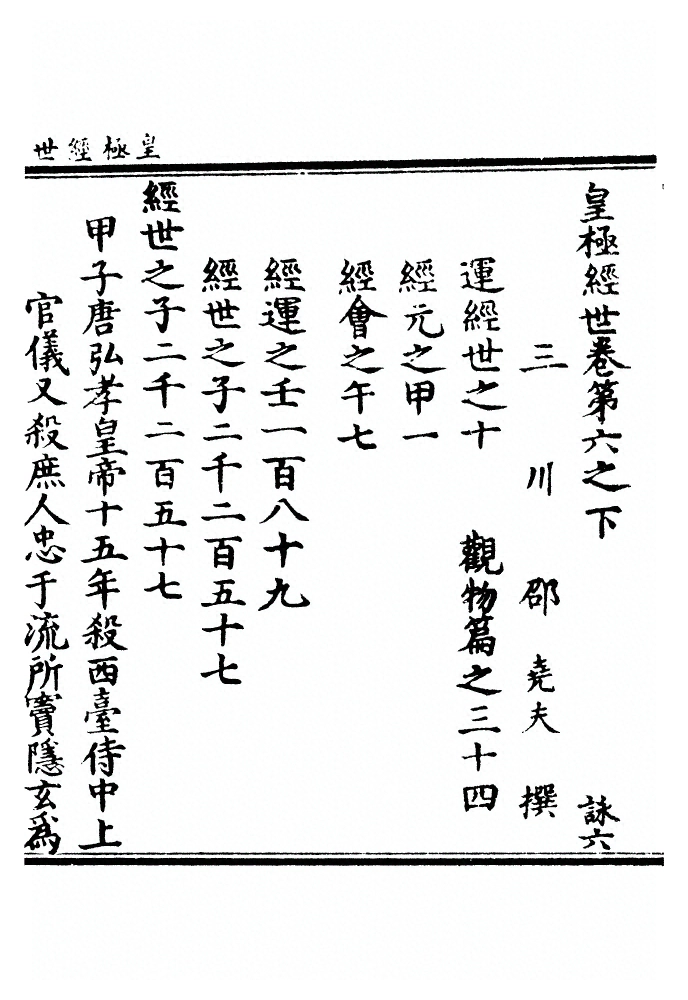 皇極經世
皇極經世卷第六之下 詠六
三川邵堯夫撰
運經世之十 觀物篇之三十四
經元之甲一
經會之午七
經運之壬一百八十九
經世之子二千二百五十七
經世之子二千二百五十七
甲子唐弘孝皇帝十五年殺西臺侍中上
官儀又殺庶人忠于流所竇隱玄爲